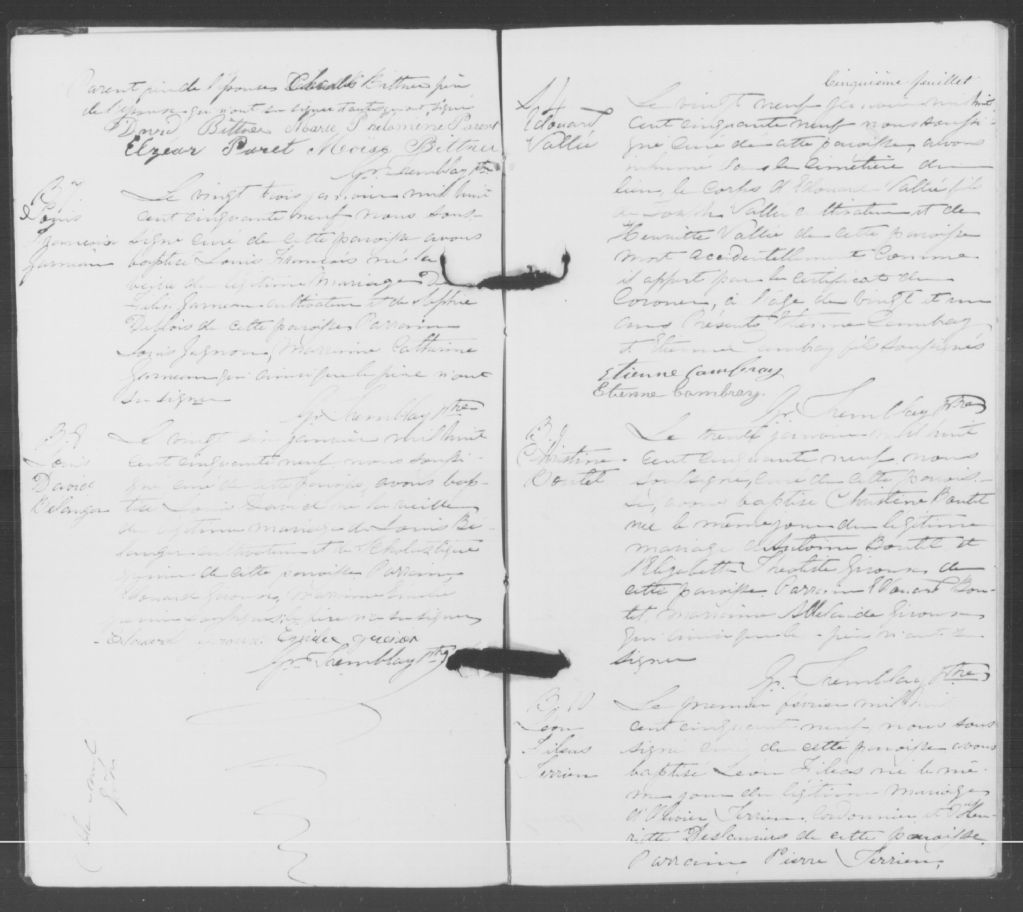 Parent père de l'épouse Charles Bittner père
de l'épouse qui n'ont su signer
David Bittner Marie Philomène Parent
Elzear Paret Moise Bittner
Gr. Tremblay Ptre
B. 7
Louis
François
Garneau
Le vingt trois janvier mil huit
cent cinquante neuf nous sous-
signé curé de cette paroisse avons
baptisé Louis François né la
veille du légitime mariage de
Félix Garneau cultivateur et de Sophie
Dubois de cette paroisse Parrain
Louis Gagnon, Marraine Catherine
Garneau qui ainsi que le père n'ont
su signer
Gr. Tremblay Ptre
B. 8
Louis
David
Belanger
Le vingt six janvier mil huit
cent cinquante neuf nous soussi-
gné curé de cette paroisse avons bap-
tisé Louis David né la veille
du légitime mariage de Louis Be-
langer cultivateur et de Scholastique
de cette paroisse Parrain
Edouard Giroux, Marraine
signer
Edouard Giroux
Gr. Tremblay Ptre
Cinquième feuillet
S. 4
Edouard
Vallée
Le vingt neuf janvier mil huit
cent cinquante neuf nous soussi-
gné curé de cette paroisse avons
inhumé dans le cimetière du
lieu, le corps d'Edouard Vallée fils
de Joseph Vallée cultivateur et de
Henriette Vallée de cette paroisse
mort accidentellement comme
il appert par le certificat du
Coroner, à l'âge de vingt et un
ans Présents Etienne Cambray
et Etienne Cambray fils soussignés
Etienne Cambray
Etienne Cambray
Gr. Tremblay Ptre
B. 9
Christine
Boutet
Le trente janvier mil huit
cent cinquante neuf nous
soussigné, curé de cette parois-
se, avons baptisé Christine Boutet
née le même jour du légitime
mariage d'Antoine Boutet et
d'Elizabeth Théotiste Giroux de
cette paroisse. Parrain Edouard Bou-
tet, marraine Adelaide Giroux
qui ainsi que le père n'ont su
signer
Gr. Tremblay Ptre
B. 10
Léon
Filéas
Terrien
Le premier février mil huit
cent cinquante neuf nous sous
signé curé de cette paroisse avons
baptisé Léon Filéas né le mê-
me jour du légitime mariage
d'Olivier Terrien, Cordonnier et d'Hen-
riette Deslauriers de cette paroisse.
Parrain, Pierre Terrien,